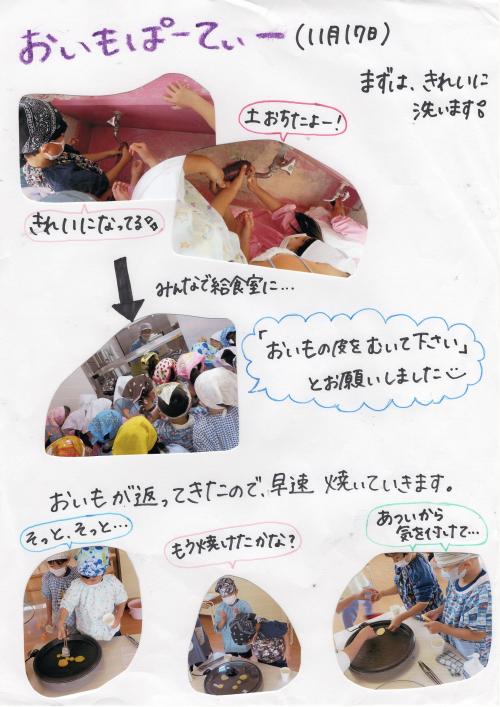 おいもぱーてぃー(11月17日)
まずは、きれいに
洗います。
土おちたよー!
きれいになってる。
みんなで給食室に…
「おいもの皮をむいて下さい」
とお願いしました
おいもが返ってきたので、早速 焼いていきます。
そっと、そっと…
もう焼けたかな?
あついから
気を付けて…